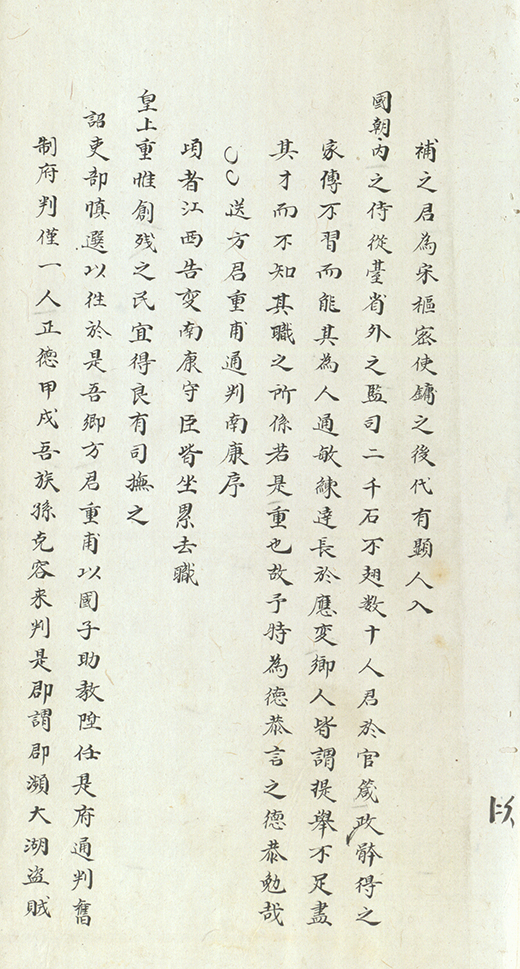 補之君為宋樞密使鏞之後代有顯人入
國朝內之侍從臺省外之監司二千石不翅数十人君於官箴政骵得之
家傳不習而能其為人通敏練達長於應变鄉人皆謂提舉不足盡
其才而不知其職之所係若是重也故予特為德恭言之德恭勉哉
送方君重甫通判南康序
頃者江西告变南康守臣皆坐累去職
皇上重惟創残之民宜得良有司撫之
詔吏部慎選以徃於是吾鄉方君重甫以國子助教陞任是府通判舊
制府判僅一人正德甲戌吾族孫克容来判是郡謂郡瀕大湖盗賊